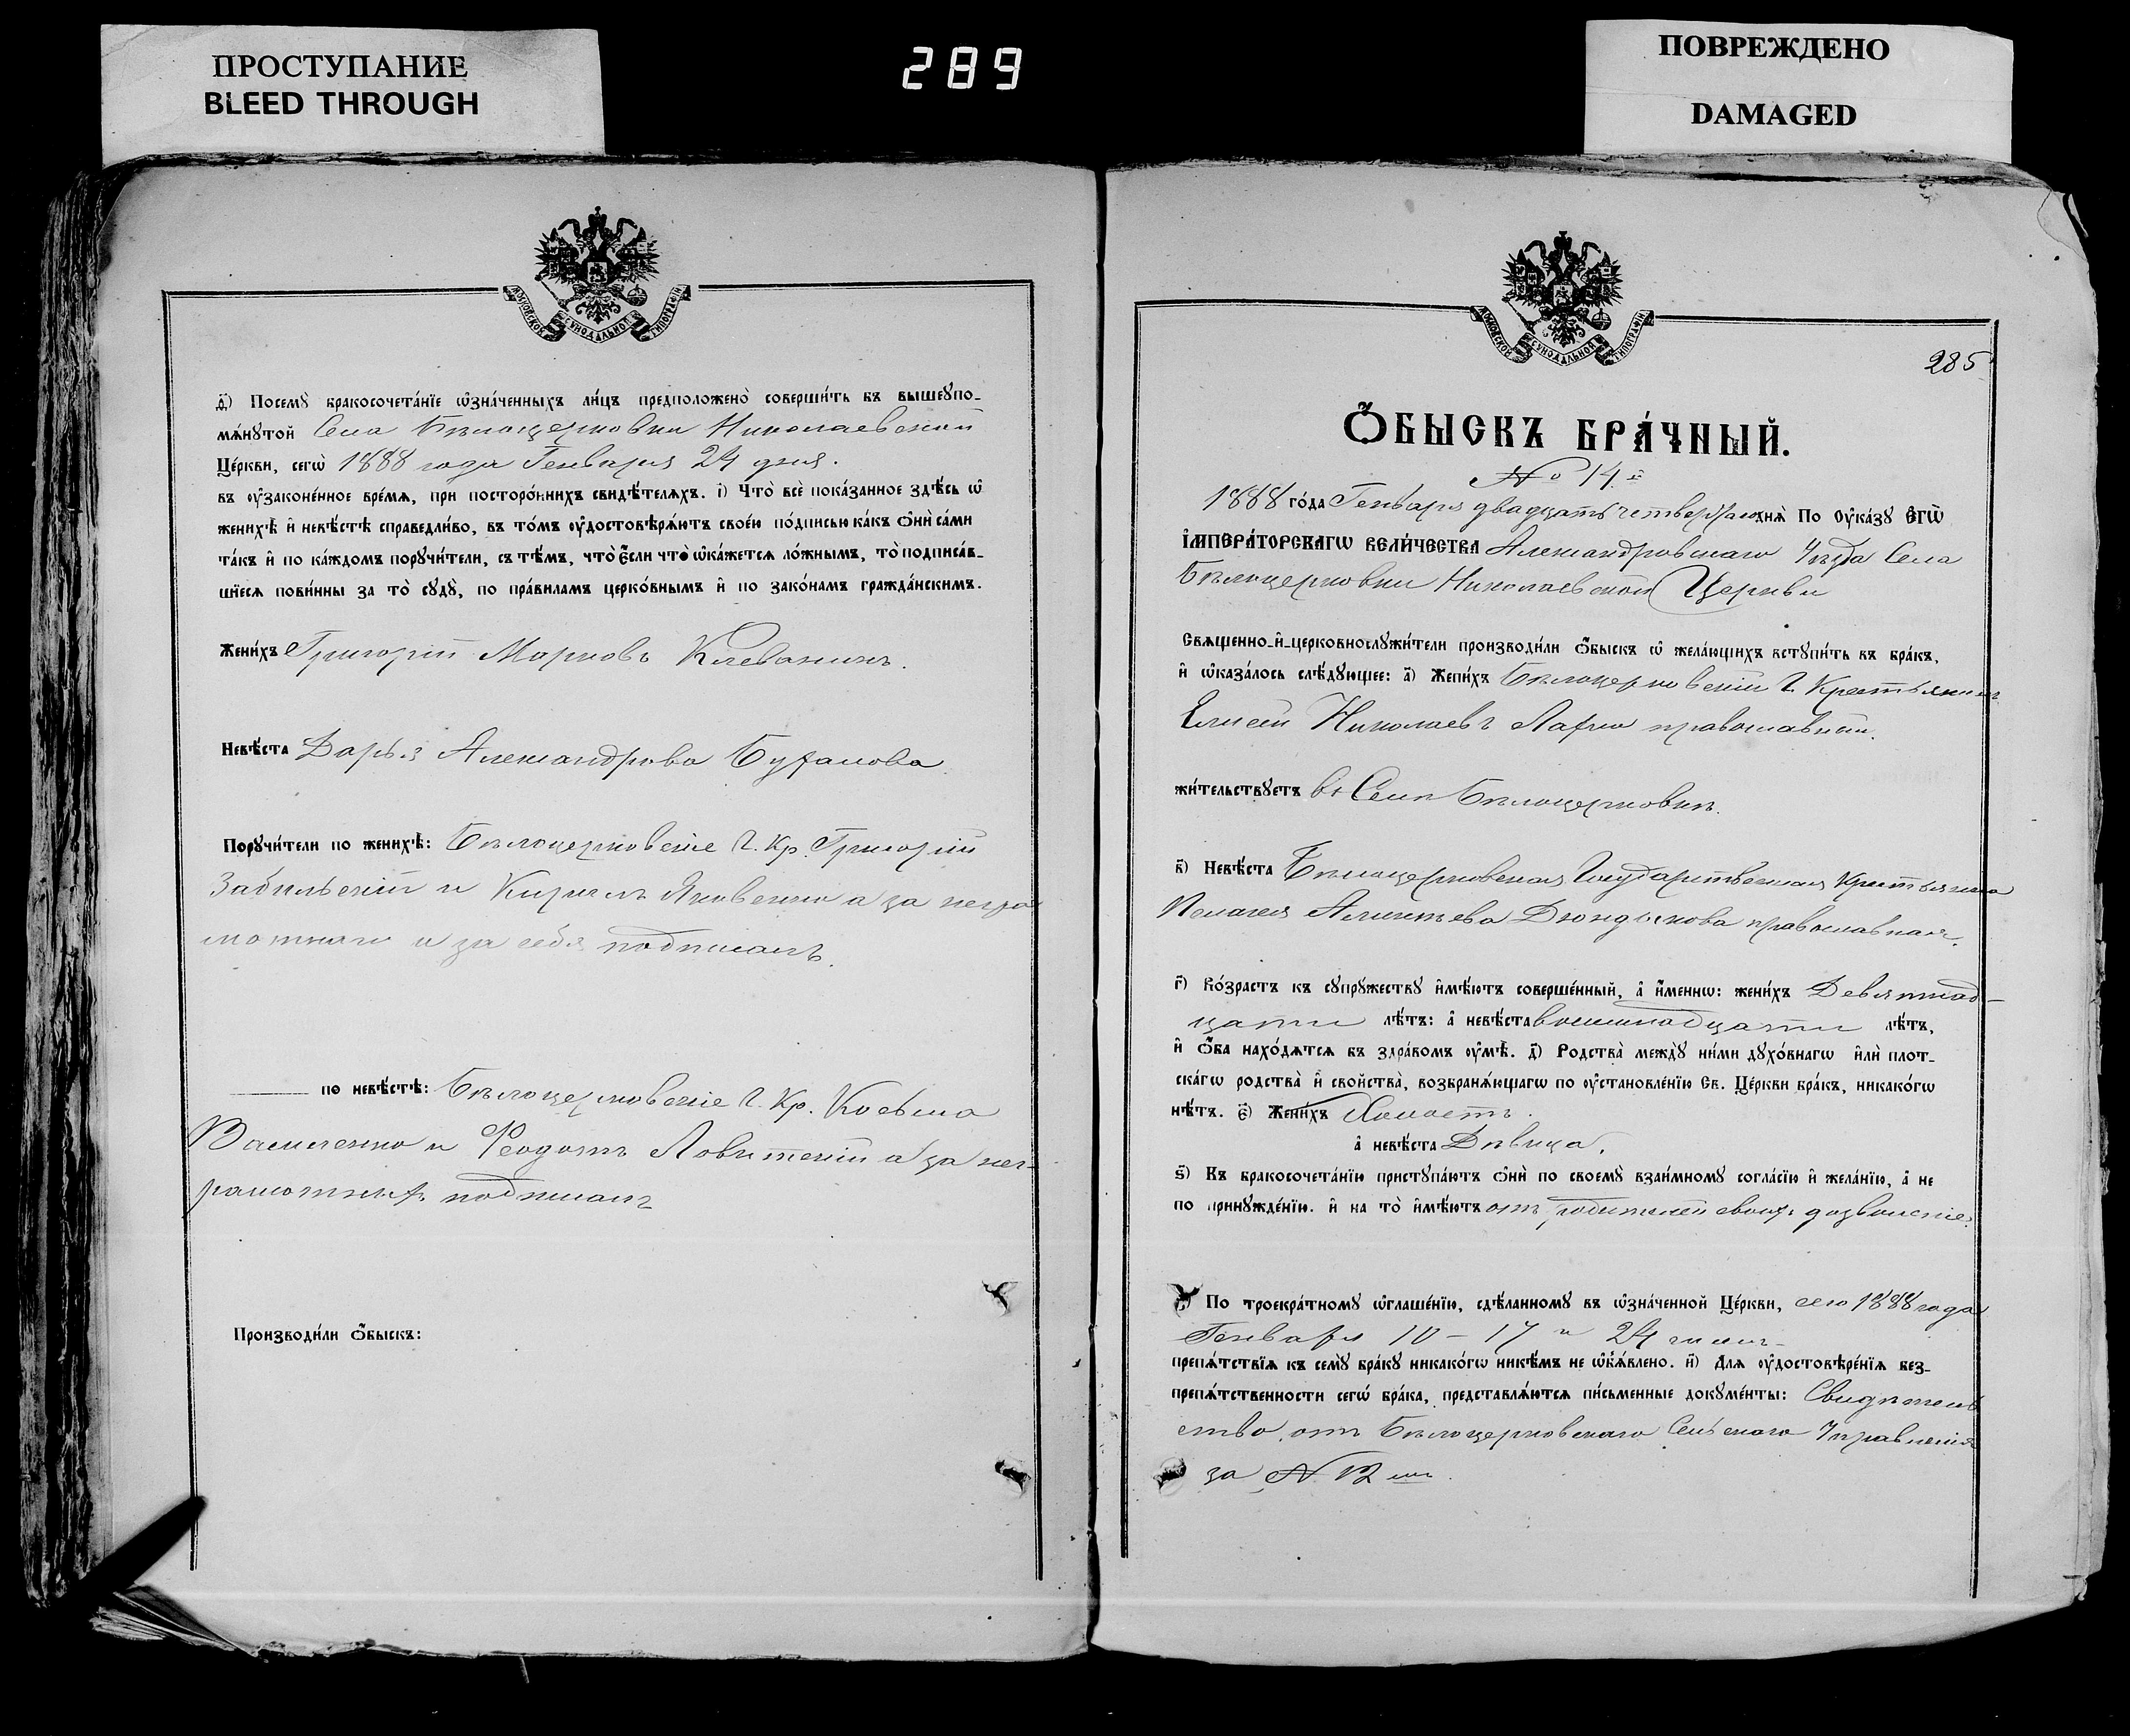 ПРОСТУПАНИЕ
BLEED THROUGH
289
ПОВРЕЖДЕНО
DAMAGED
МОСКОВСКОЙ СѴНОДАЛЬНОЙ ТИПОГРАФІИ
ѳ҃) Посемꙋ̀ бракосочета́нїе ѡ҆зна́ченныхъ ли́цъ предположено̀ соверши́ть въ вышеꙋпо-
мѧ́нꙋтой Села Бѣлоцерковки Николаевской
Це́ркви, сегѡ̀ 1888 года Генваря 24 дня.
въ ᲂу҆законе́нное вре́мѧ, при посторо́ннихъ свидѣ́телѧхъ. і҃) Что̀ всѐ пока́занное здѣ́сь ѡ҆
женихѣ̀ и҆ невѣ́стѣ справедли́во, въ то́мъ ᲂу҆достовѣрѧ́ютъ свое́ю по́дписью ка́къ ѻ҆нѝ са́ми
та́къ и҆ по ка́ждомъ порꙋчи́тели, съ тѣ́мъ, что̀ є҆́сли что̀ ѡ҆ка́жетсѧ ло́жнымъ, то̀ подписа́в-
шїесѧ пови́нны за то̀ сꙋдꙋ̀, по пра́виламъ церко́внымъ и҆ по зако́намъ гражда́нскимъ.
Жени́хъ Григорій Марковъ Клеванникъ.
Невѣ́ста Дарья Александрова Буханова
Порꙋчи́тели по женихѣ̀: Бѣлоцерковскіе Г. Кр. Григорій
Забильскій и Кирилъ Яковенко а за негра
мотнаго и за себя подписалъ.
по невѣ́стѣ: Бѣлоцерковскіе Г. Кр. Косьма
Василенко и Феодотъ Ловитскій а за нег-
рамотныхъ подписалъ
Производи́ли ѻ҆́быскъ:
МОСКОВСКОЙ СѴНОДАЛЬНОЙ ТИПОГРАФІИ
285
Ѻ҆́БЫСКЪ БРА́ЧНЫЙ.
№ 14й
1888 го́да Генваря двадцать четвертаго днѧ̀ По Оу҆ка́зꙋ Є҆ГѠ̀
І҆МПЕРА́ТОРСКАГѠ ВЕЛИ́ЧЕСТВА Александровскаго Уѣзда Села
Бѣлоцерковки Николаевской Церкви
Свѧщенно-и҆-церковнослꙋжи́тели производи́ли ѻ҆́быскъ ѡ҆ жела́ющихъ встꙋпи́ть въ бра́къ,
и҆ ѡ҆каза́лось слѣ́дꙋющее: а҃) Жени́хъ Бѣлоцерковскій Г. Крестьянинъ
Елисей Николаевъ православный.
жи́тельствꙋетъ въ Селѣ Бѣлоцерковкѣ.
в҃) Невѣ́ста Бѣлоцерковская Государственная Крестьянка
Пелагея Алексѣева Дюндикова православная.
г҃) Во́зрастъ къ сꙋпрꙋ́жествꙋ и҆мѣ́ютъ соверше́нный, а҆ и҆́меннѡ: жени́хъ Девятнад-
цати лѣ́тъ: а҆ невѣ́ста восемнадцати лѣ́тъ,
и҆ ѻ҆́ба нахо́дѧтсѧ въ здра́вомъ ᲂу҆мѣ̀. д҃) Родства̀ междꙋ̀ ни́ми дꙋхо́внагѡ и҆лѝ плот-
ска́гѡ родства̀ и҆ сво́йства̀, возбранѧ́ющагѡ по ᲂу҆становле́нїю Св. Це́ркви бра́къ, никако́гѡ
нѣ́тъ. є҃) Жени́хъ Холостъ.
а҆ невѣ́ста Дѣвица.
ѕ҃) Къ бракосочета́нїю пристꙋпа́ютъ ѻ҆нѝ по своемꙋ̀ взаи́мномꙋ согла́сїю и҆ жела́нїю, а҆ не
по принꙋжде́нїю. и҆ на то̀ и҆мѣ́ютъ отъ родителей своихъ дозволеніе.
з҃) По троекра́тномꙋ ѡ҆глаше́нїю, сдѣ́ланномꙋ въ ѡ҆зна́ченной Це́ркви, сего 1888 года
Генваря 10 – 17 и 24 чиселъ
препѧ́тствїѧ къ семꙋ̀ бра́кꙋ никако́гѡ никѣ́мъ не ѡ҆б̾ѧ́влено. и҃) Длѧ ᲂу҆достовѣре́нїѧ без-
препѧ́тственности сегѡ̀ бра́ка, представлѧ́ютсѧ пи́сьменные докꙋме́нты: Свидѣтель
ство отъ Бѣлоцерковскаго Сельскаго Управленія
за № 12мъ.